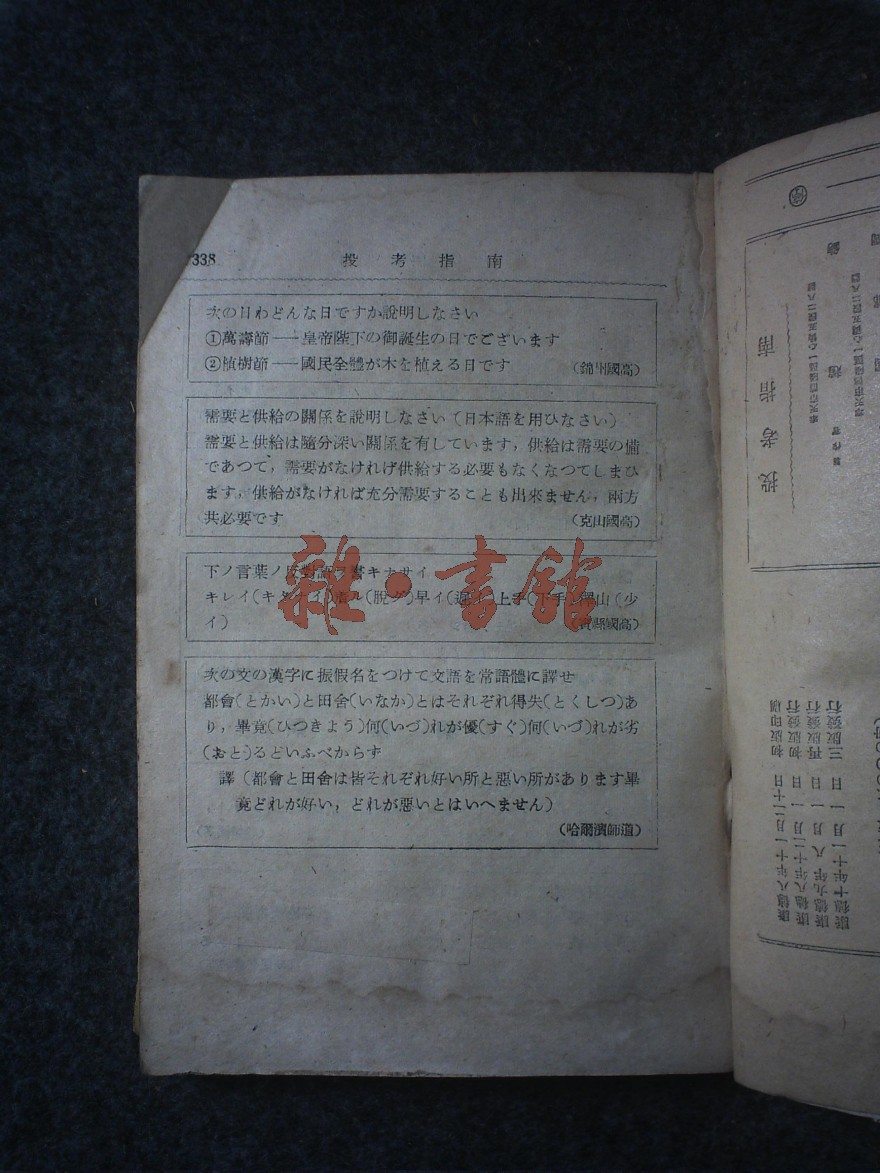 338
投考指南
次の日わどんな日ですか説明しなさい
①萬壽節——皇帝陛下の御誕生の日でございます
②植樹節——國民全體が木を植える日です
(錦州國高)
需要と供給の關係を説明しなさい(日本語を用ひなさい)
需要と供給は隨分深い關係を有しています，供給は需要の備
であつて，需要がなければ供給する必要もなくなつてしまひ
ます，供給がなければ充分需要することも出來ません，兩方
共必要です
(克山國高)
下ノ言葉ノ反對語ヲ書キナサイ
キレイ(キタナイ)着ル(脱グ)早イ(遲イ)上手(下手)澤山(少
イ)
縣國高)
次の文の漢字に振假名をつけて文語を常語體に譯せ
都會(とかい)と田舍(いなか)とはそれぞれ得失(とくしつ)あ
り，畢竟(ひつきよう)何(いづ)れが優(すぐ)何(いづ)れが劣
(おと)るどいふべからず
譯(都會と田舍は皆それぞれ好い所と惡い所があります畢
竟どれが好い，どれが惡いとはいへません)
(哈爾濱師道)
雜·書館
投考指南
康德八年十一月二十日 初版印刷
康德八年十二月一日 初版發行
康德九年八月一日 再版發行
康德十年十一月一日 三版發行